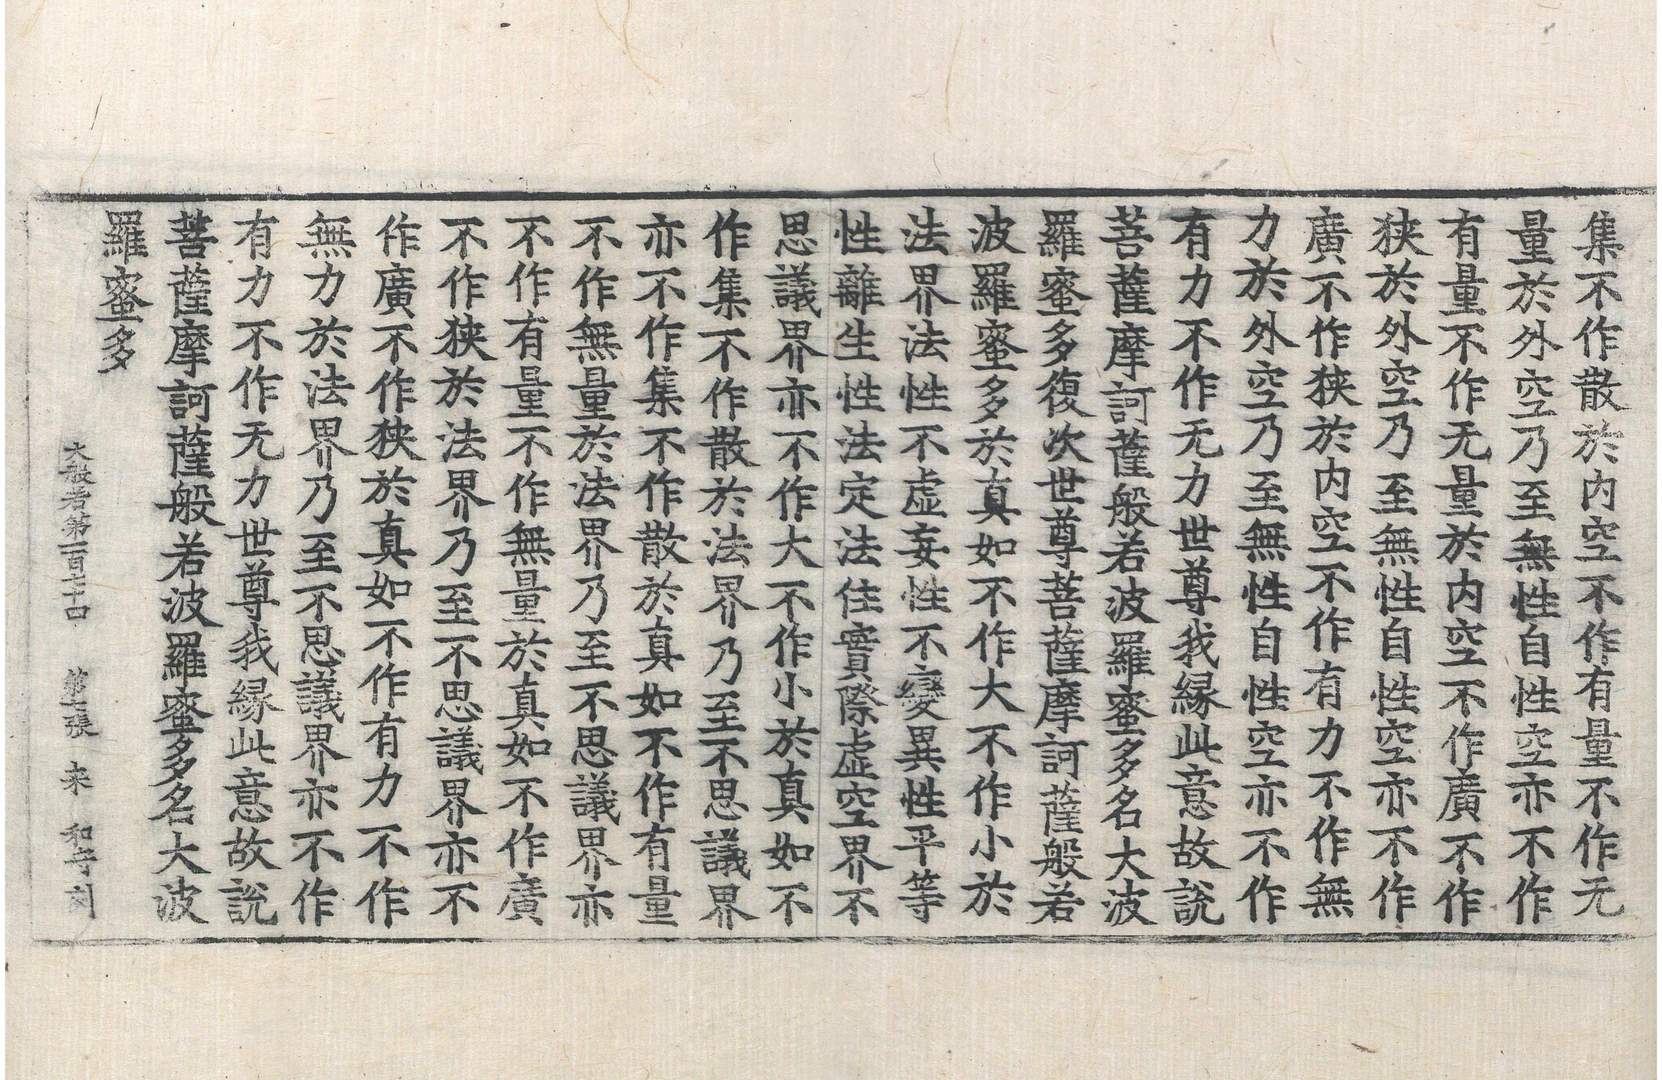 集不作散於内空不作有量不作无
量於外空乃至無性自性空亦不作
有量不作无量於内空不作廣不作
狭於外空乃至無性自性空亦不作
廣不作狭於内空不作有力不作無
力於外空乃至無性自性空亦不作
有力不作无力世尊我縁此意故說
菩薩摩訶薩般若波羅蜜多名大波
羅蜜多復次世尊菩薩摩訶薩般若
波羅蜜多於真如不作大不作小於
法界法性不虛妄性不變異性平等
性離生性法定法住實際虛空界不
思議界亦不作大不作小於真如不
作集不作散於法界乃至不思議界
亦不作集不作散於真如不作有量
不作無量於法界乃至不思議界亦
不作有量不作無量於真如不作廣
不作狭於法界乃至不思議界亦不
作廣不作狭於真如不作有力不作
無力於法界乃至不思議界亦不作
有力不作无力世尊我縁此意故說
菩薩摩訶薩般若波羅蜜多名大波
羅蜜多
大般若第一百七十四 第七張 来 和守刻